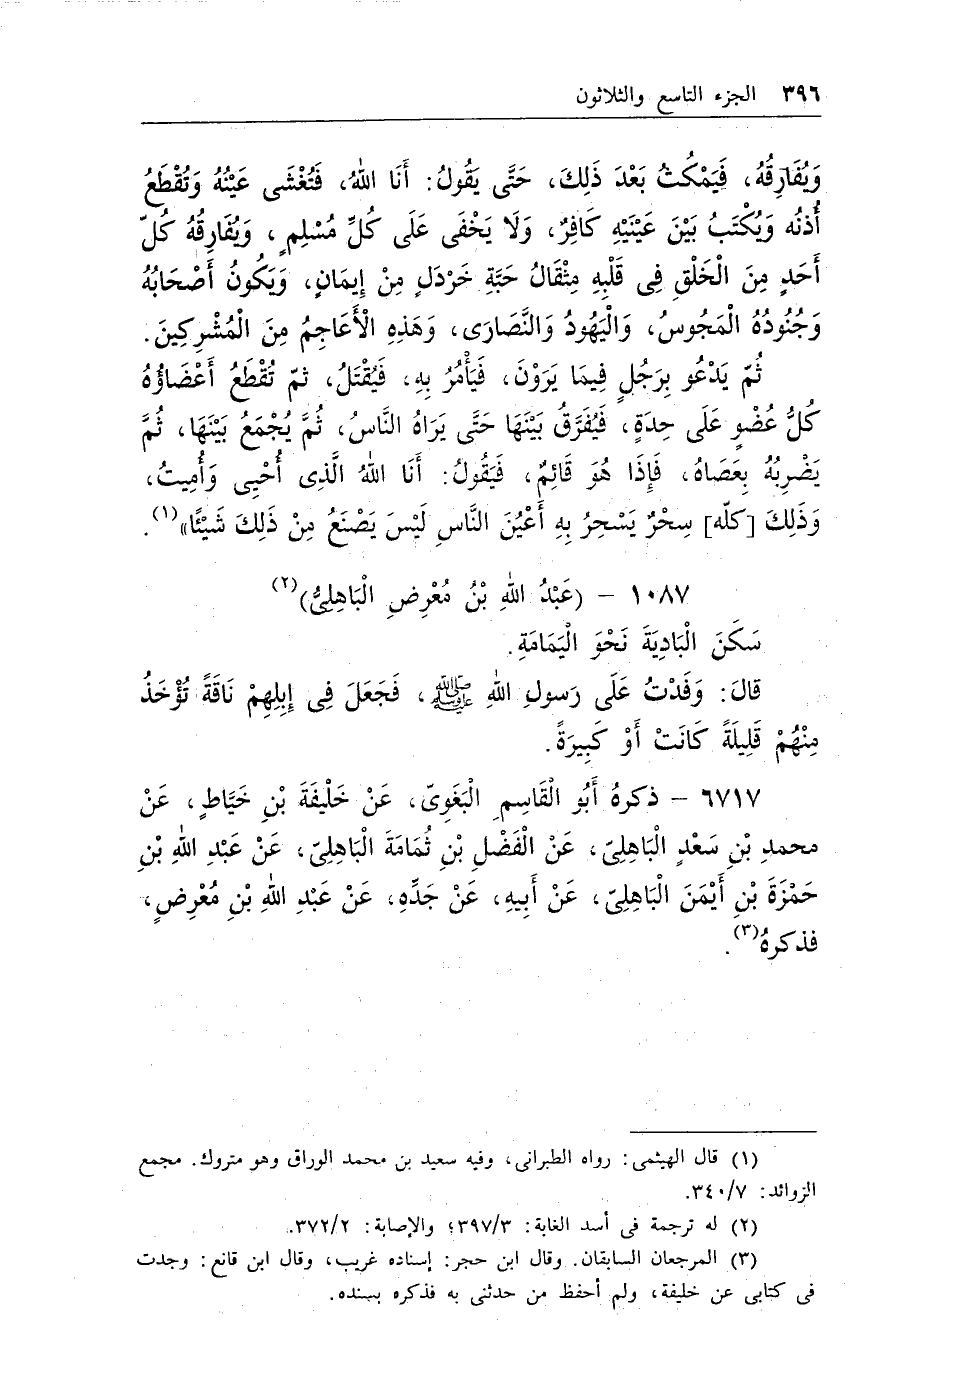 ٣٩٦ الجزء التاسع والثلاثون
وَيُفَارِقُهُ، فَيَمْكُثُ بَعْدَ ذَلِكَ، حَتَّى يَقُولُ: أَنَا اللهُ، فَتُغْشَى عَيْنُهُ وَتُقْطَعُ
أُذنُه وَيُكْتَبُ بَيْنَ عَيْنَيْهِ كَافِرٌ، وَلَا يَخْفَى عَلَى كُلِّ مُسْلِمٍ، وَيُفَارِقُهُ كُلّ
أَحَدٍ مِنَ الْخَلْقِ فِى قَلْبِهِ مِثْقَالُ حَبَّةِ خَرْدَلٍ مِنْ إِيمَانٍ، وَيَكُونُ أَصْحَابُهُ
وَجُنُودُهُ الْمَجُوسُ، وَالْيَهُودُ وَالنَّصَارَى، وَهَذِهِ الْأَعَاجِمُ مِنَ الْمُشْرِكِينَ.
ثُمّ يَدْعُو بِرَجُلٍ فِيمَا يَرَوْنَ، فَيَأْمُرُ بِهِ، فَيُقْتَلُ، ثمّ تُقْطَعُ أَعْضَاؤُهُ
كُلُّ عُضْوٍ عَلَى حِدَةٍ، فَيُفَرَّقُ بَيْنَهَا حَتَّى يَرَاهُ النَّاسُ، ثُمَّ يُجْمَعُ بَيْنَهَا، ثُمَّ
يَضْرِبُهُ بِعَصَاهُ، فَإِذَا هُوَ قَائِمٌ، فَيَقُولُ: أَنَا اللهُ الَّذِى أُحْيِى وَأُمِيتُ،
وَذَلِكَ [كلّه] سِحْرٌ يَسْحِرُ بِهِ أَعْيُنَ النَّاسِ لَيْسَ يَصْنَعُ مِنْ ذَلِكَ شَيْئًا»(١).
١٠٨٧ - (عَبْدُ اللهِ بْنُ مُعْرِضِ الْبَاهِلِيُّ)(٢)
سَكَنَ الْبَادِيَةَ نَحْوَ الْيَمَامَةِ.
قالَ: وَفَدْتُ عَلَى رَسولِ اللهِ ﷺ، فَجَعَلَ فِى إِبِلِهِمْ نَاقَةً تُؤْخَذُ
مِنْهُمْ قَلِيلَةً كَانَتْ أَوْ كَبِيرَةً.
٦٧١٧ - ذكرهُ أَبُو الْقَاسِمِ الْبَغَوِىّ، عَنْ خَلْيفَةَ بْنِ خَيَّاطٍ، عَنْ
محمدِ بْنِ سَعْدٍ الْبَاهِلِىّ، عَنْ الْفَضْلِ بْنِ ثُمَامَةَ الْبَاهِلِىّ، عَنْ عَبْدِ اللهِ بْنِ
حَمْزَةَ بْنِ أَيْمَنَ الْبَاهِلِىّ، عَنْ أَبِيهِ، عَنْ جَدِّهِ، عَنْ عَبْدِ اللهِ بْنِ مُعْرِضٍ،
فذكرهُ(٣).
(١) قال الهيثمى: رواه الطبرانى، وفيه سعيد بن محمد الوراق وهو متروك. مجمع
الزوائد: ٣٤٠/٧.
(٢) له ترجمة فى أسد الغابة: ٣٩٧/٣؛ والإصابة: ٣٧٢/٢.
(٣) المرجعان السابقان. وقال ابن حجر: إسناده غريب، وقال ابن قانع: وجدت
فى كتابى عن خليفة، ولم أحفظ من حدثنى به فذكره بسنده.